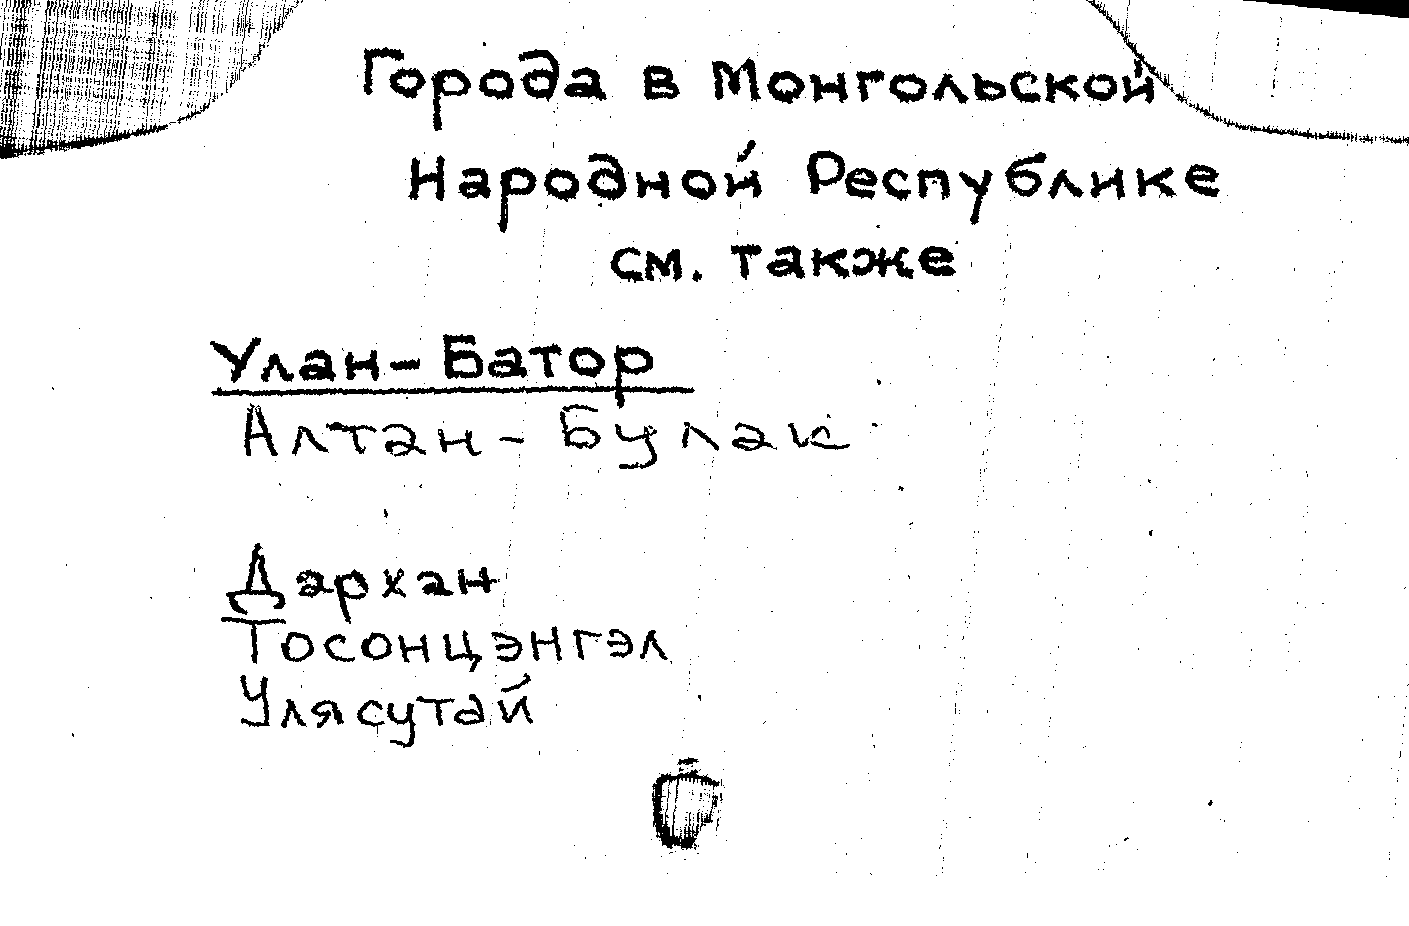 Города в Монгольской
Народной Республике
см. также
Улан-Батор
Алтан-Булак
Дархан
Тосонцэнгэл
Улясутай